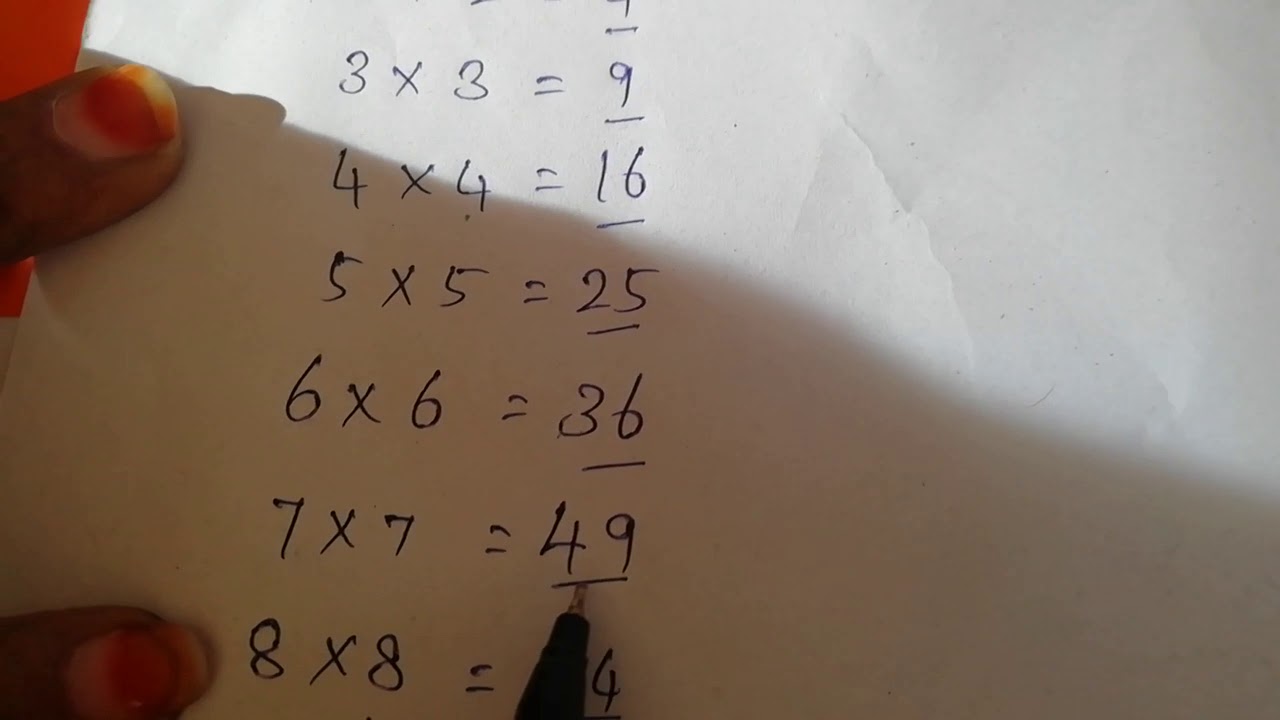 3 × 3 = 9
4 × 4 = 16
5 × 5 = 25
6 × 6 = 36
7 × 7 = 49
8 × 8 = 4